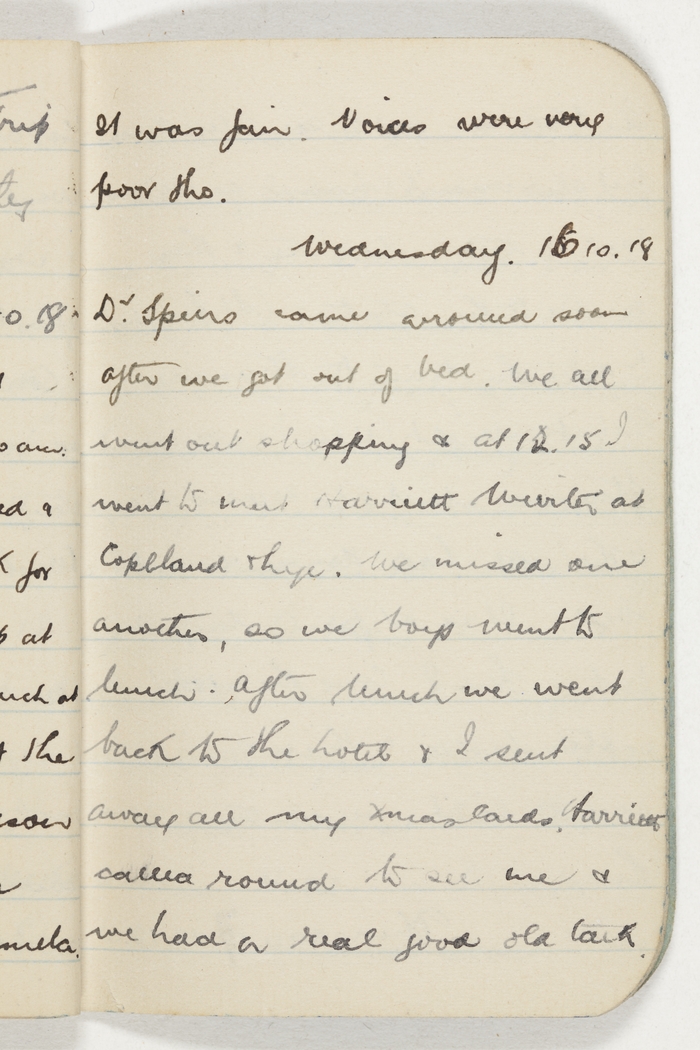 It was fair. Voices were very
poor tho.
Wednesday. 16 10.18
Dr Speirs came arround soon
after we got out of bed. We all
went out shopping & at 12.15 I
went to meet Harriett at
Coplland & Lye. We missed one
another, so we boys went to
lunch. After lunch we went
back to the hotel & I sent
away all my Xmas Cards. Harriett
called round to see me &
we had a real good old talk.